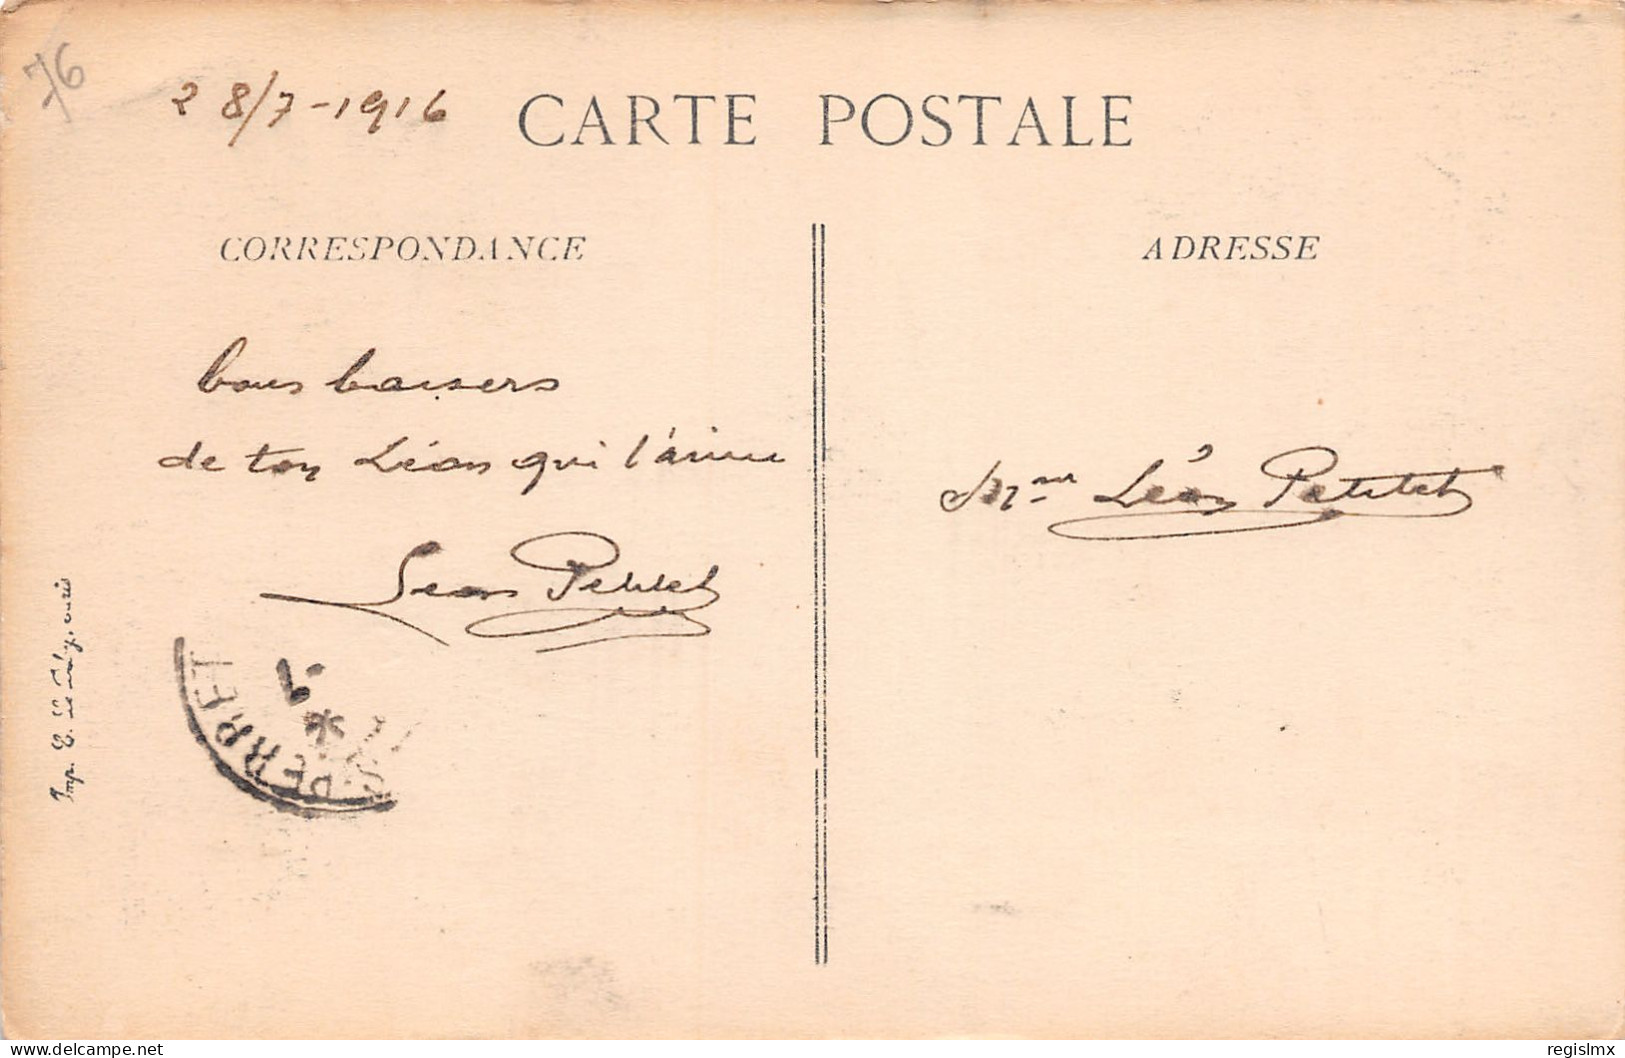 76
28/7-1916
CARTE POSTALE
CORRESPONDANCE
ADRESSE
bons baisers
de ton Léon qui t'aime
Léon Petitet
Mme Léon Petitet
Imp. E. Le
PERRET
delcampe.net
regislmx